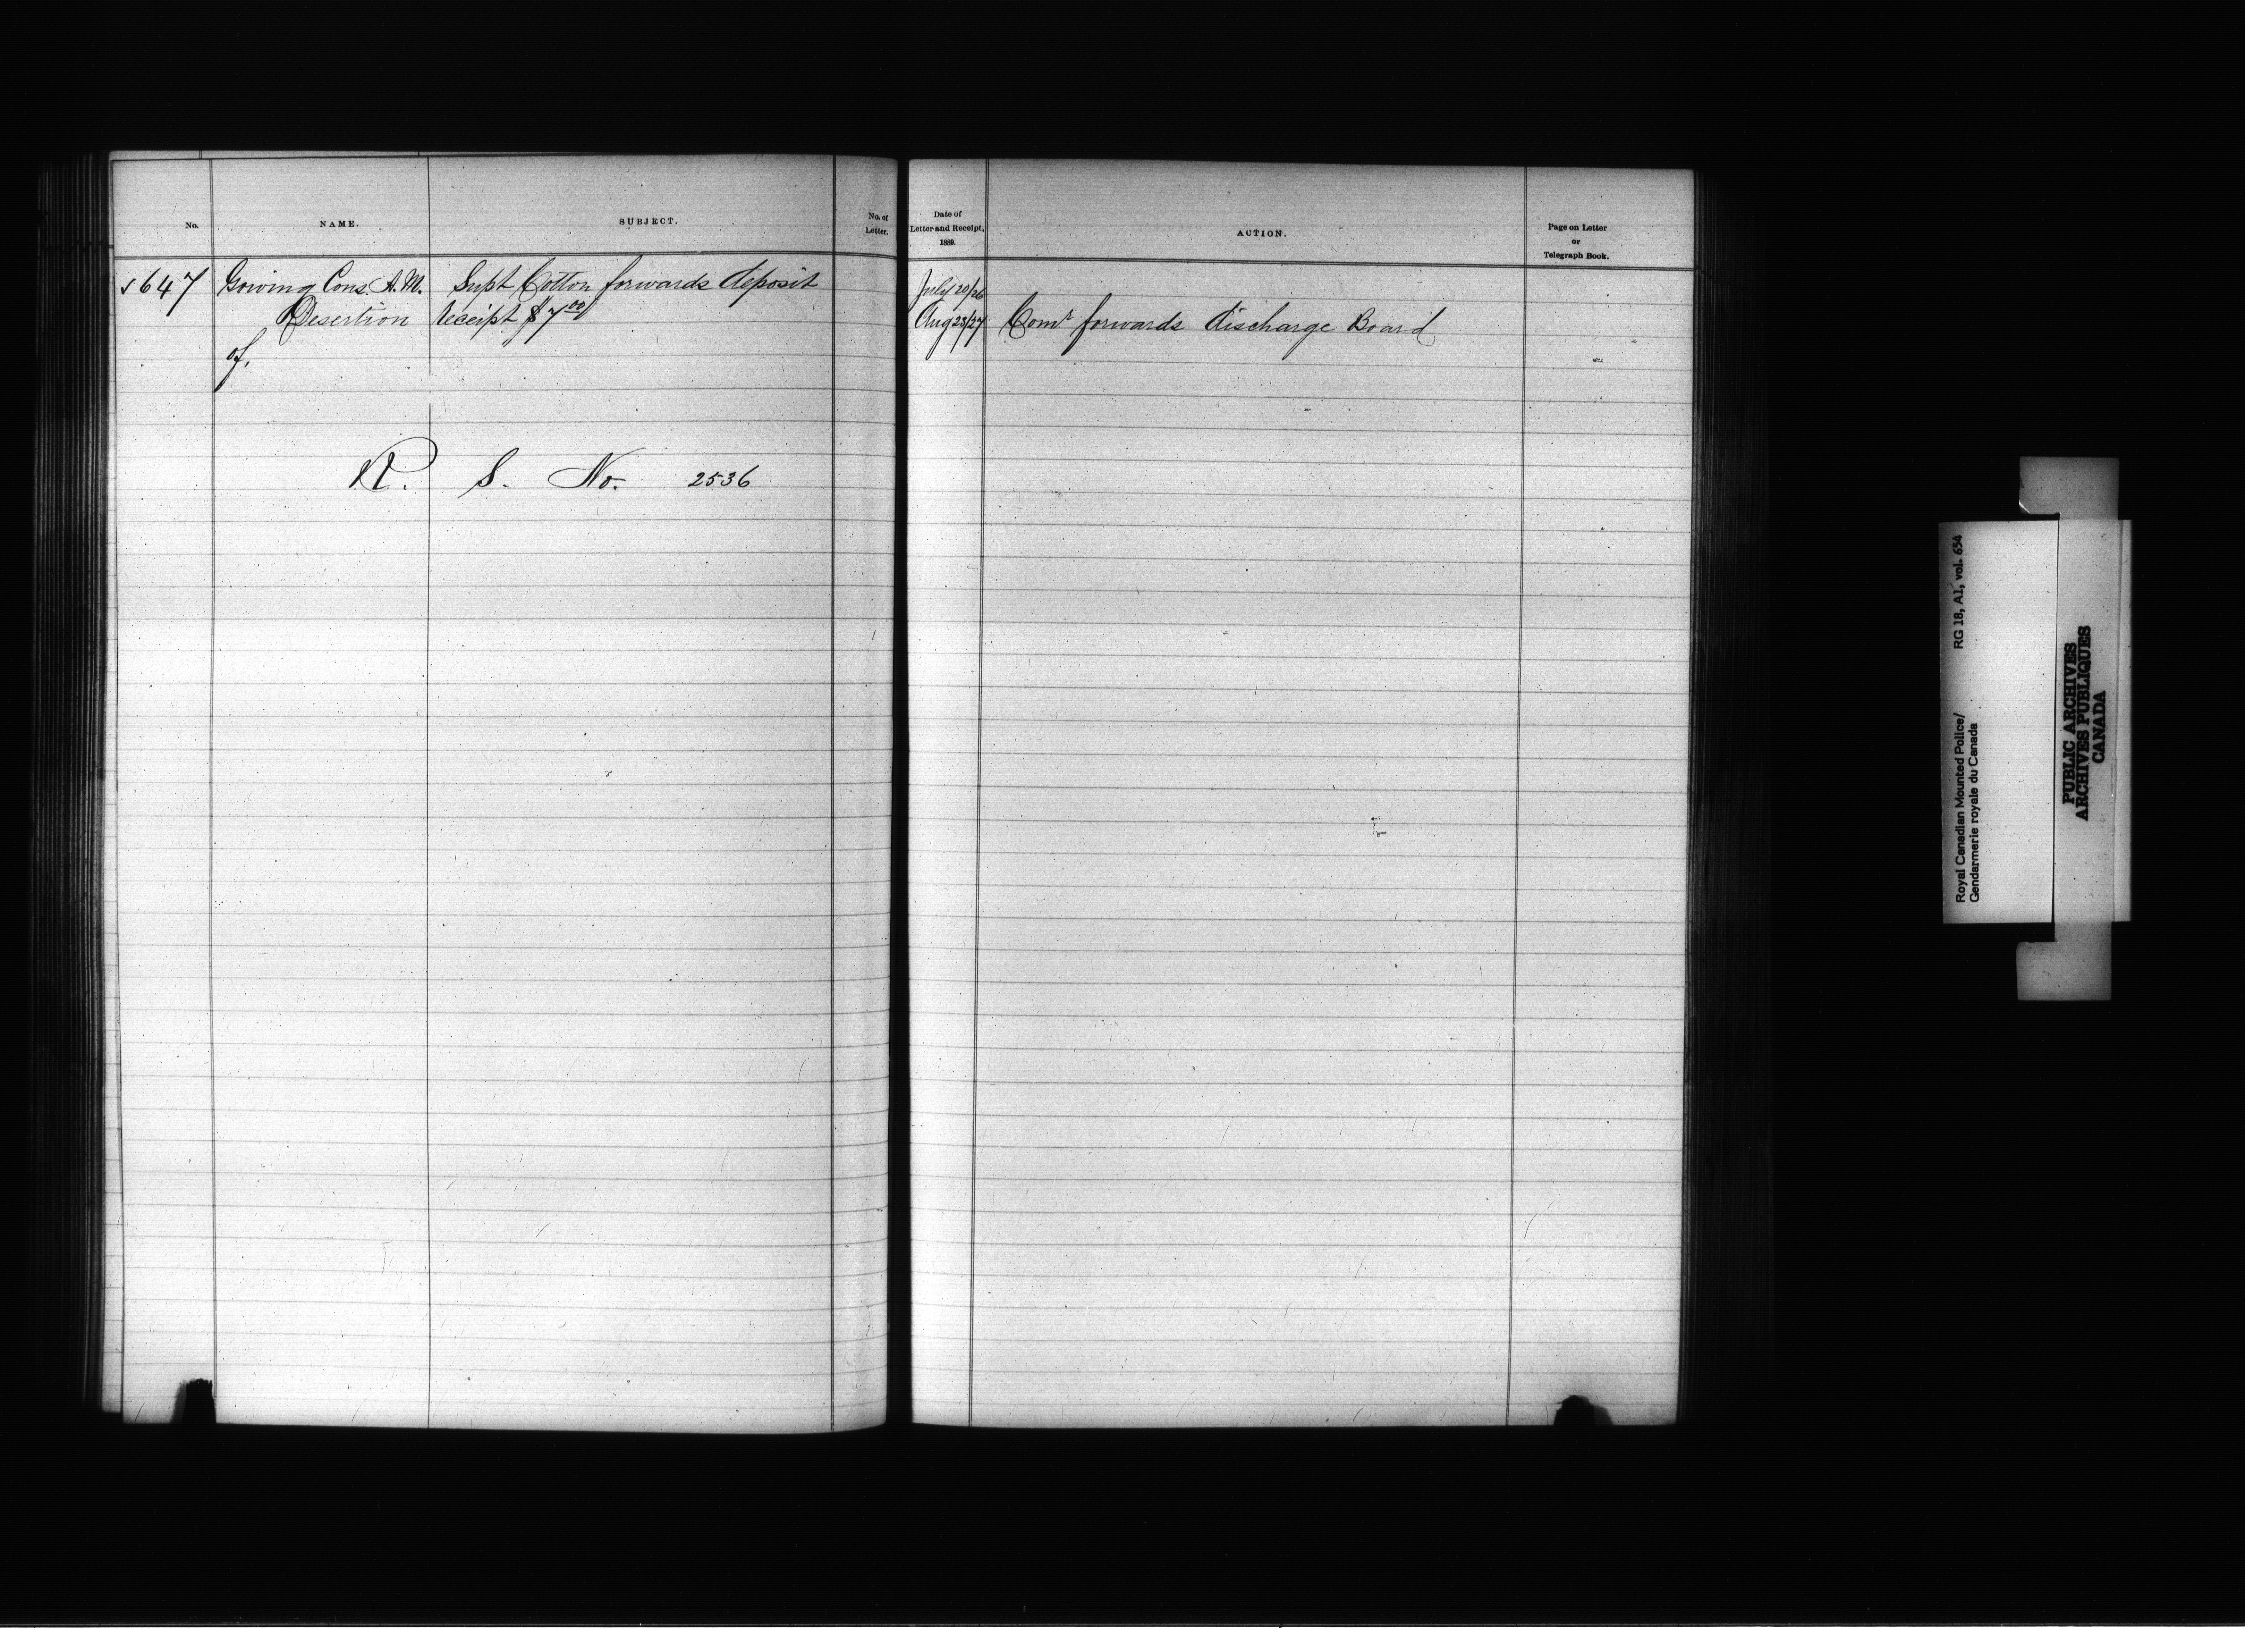 No.
NAME.
SUBJECT.
No. of
Letter.
647 Gowing Cons. A. M. Supt Cotton forwards deposit
Desertion receipt $7.00
of.
R. S. No. 2536
Date of
Letter and Receipt,
1889.
ACTION.
Page on Letter
or
Telegraph Book.
July 20/26
Aug 23/27 Comr forwards discharge Board
Royal Canadian Mounted Police/ RG 18, A1, vol. 654
Gendarmerie royale du Canada
PUBLIC ARCHIVES
ARCHIVES PUBLIQUES
CANADA